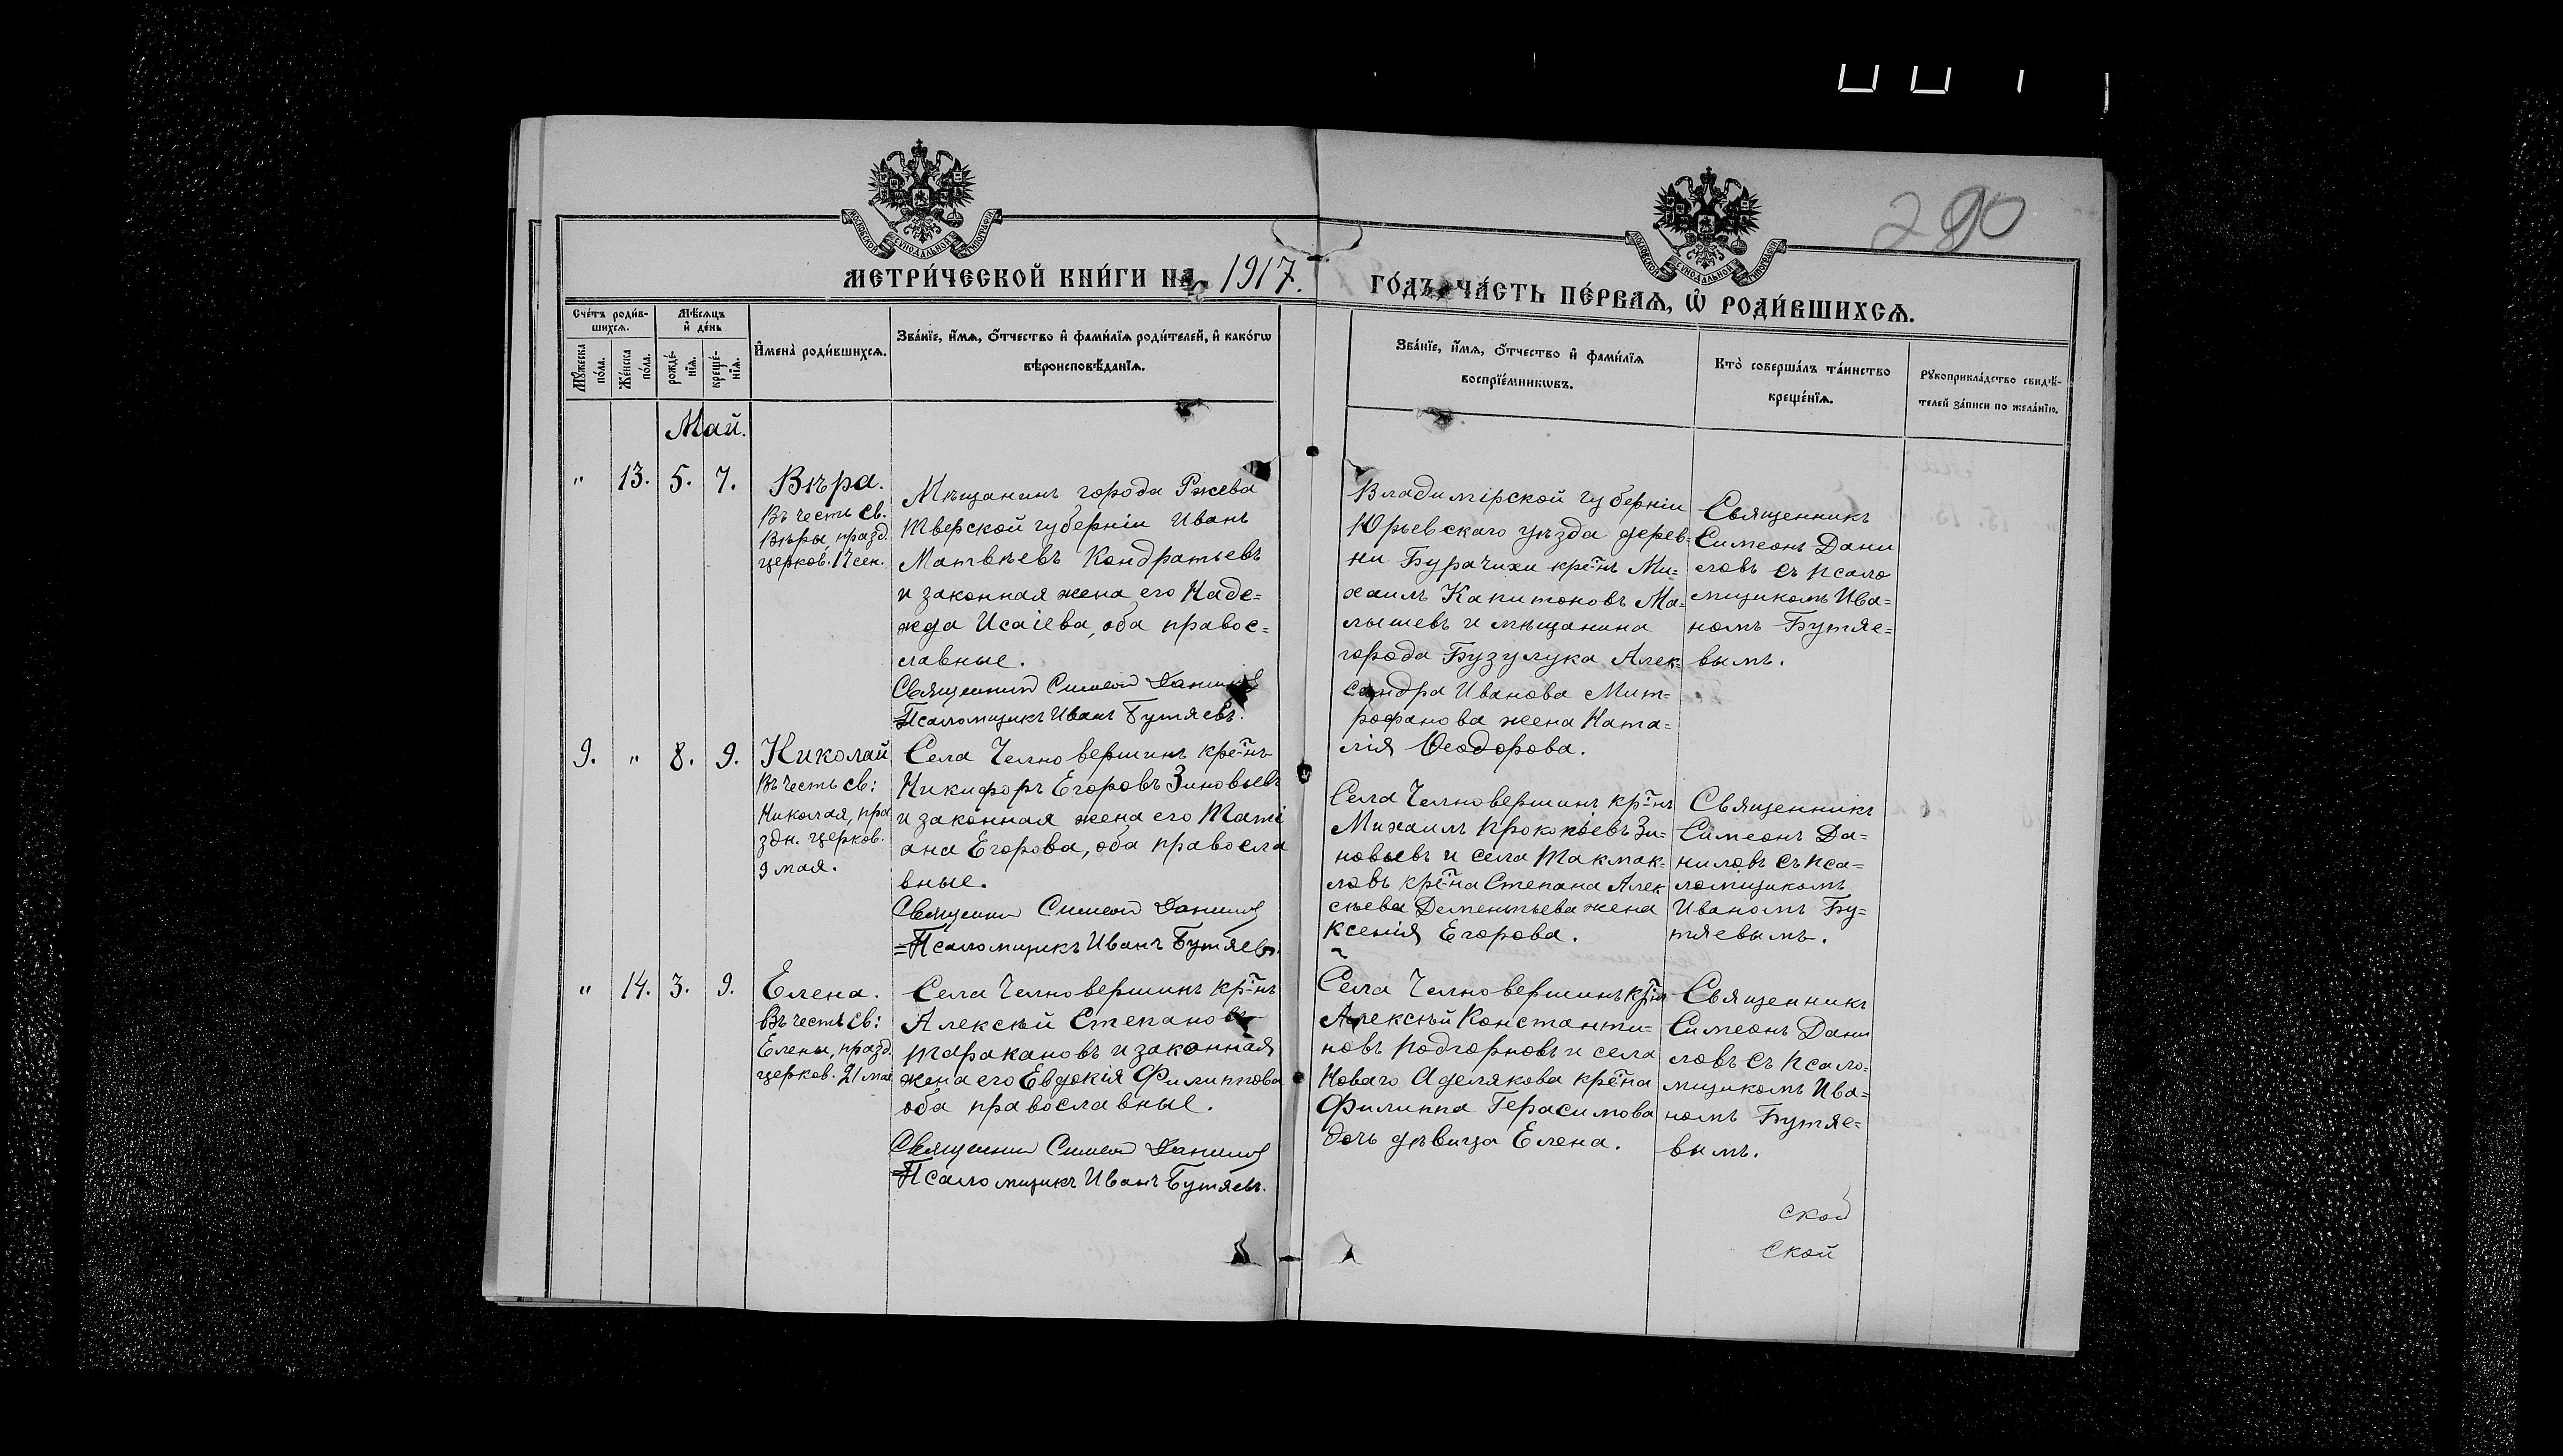 290
МОСКОВСКОЙ СѴНОДАЛЬНОЙ ТИПОГРАФІИ
МОСКОВСКОЙ СѴНОДАЛЬНОЙ ТИПОГРАФІИ
МЕТРИ́ЧЕСКОЙ КНИ́ГИ НА 1917. ГО́ДЪ, ЧА́СТЬ ПЕ́РВАѦ, Ѽ РОДИ́ВШИХСѦ.
Сче́тъ роди́в-
шихсѧ.
Мѣ́сѧцъ
и де́нь
Мꙋ́жеска
по́ла.
Же́нска
по́ла.
рожде́-
нїѧ.
креще́-
нїѧ.
И҆мена̀ роди́вшихсѧ.
Зва́нїе, и҆́мѧ, ѻ҆́тчество и҆ фами́лїѧ роди́телей, и҆ како́гѡ
вѣроисповѣ́данїѧ.
Зва́нїе, и҆́мѧ, ѻ҆́тчество и҆ фами́лїѧ
воспрїе́мникѡвъ.
Кто̀ соверша́лъ та́инство
креще́нїѧ.
Рꙋкоприкла́дство свидѣ́-
телей за́писи по жела́нїю.
Май.
" 13. 5. 7.
Вѣра.
Въ честь св.
Вѣры, празд.
церков. 17 сен.
Мѣщанинъ города Ржева
Тверской губерніи Иванъ
Матвѣевъ Кондратьевъ
и законная жена его Наде=
жда Исаіева, оба правос=
лавные.
Священникъ Симеонъ Данилов
Псаломщикъ Иванъ Бутяевъ.
Владимірской губерніи
Юрьевскаго уѣзда дерев=
ни Бурачихи кре-нъ Ми=
хаилъ Капитоновъ Ма=
лышевъ и мѣщанина
города Бузулука Алек=
сандра Иванова Мит=
рофанова жена Ната=
лія Ѳеодорова.
Священникъ
Симеонъ Дани
ловъ съ псало
мщикомъ Ива=
номъ Бутяе=
вымъ.
9. " 8. 9.
Николай
Въ честь св:
Николая, пра
здн. церков.
9 мая.
Села Челновершинъ кре-нъ
Никифоръ Егоровъ Зиновьевъ
и законная жена его Таті
ана Егорова, оба правосла
вные.
Священник Симеон Данилов
Псаломщикъ Иванъ Бутяевъ.
Села Челновершинъ кр-нъ
Михаилъ Прокопіевъ Зи=
новьевъ и села Такмак=
ловъ кре-на Степана Алек
сѣева Дементьева жена
Ксенія Егорова.
Священникъ
Симеонъ Да=
ниловъ съ пса=
ломщикомъ
Иваномъ Бу=
тяевымъ.
" 14. 3. 9.
Елена.
Въ честь св:
Елены, празд.
церков. 21 мая
Села Челновершинъ кр-нъ
Алексѣй Степановъ
Таракановъ и законная
жена его Евдокія Филиппова
оба православные.
Священник Симеон Данилов
Псаломщикъ Иванъ Бутяевъ.
Села Челновершинъ кр-нъ
Алексѣй Константи=
новъ Подгорновъ и села
Новаго Аделякова кре-на
Филиппа Герасимова
дочь дѣвица Елена.
Священникъ
Симеонъ Дани
ловъ съ псало=
мщикомъ Ива=
номъ Бутяе=
вымъ.
ской
ской